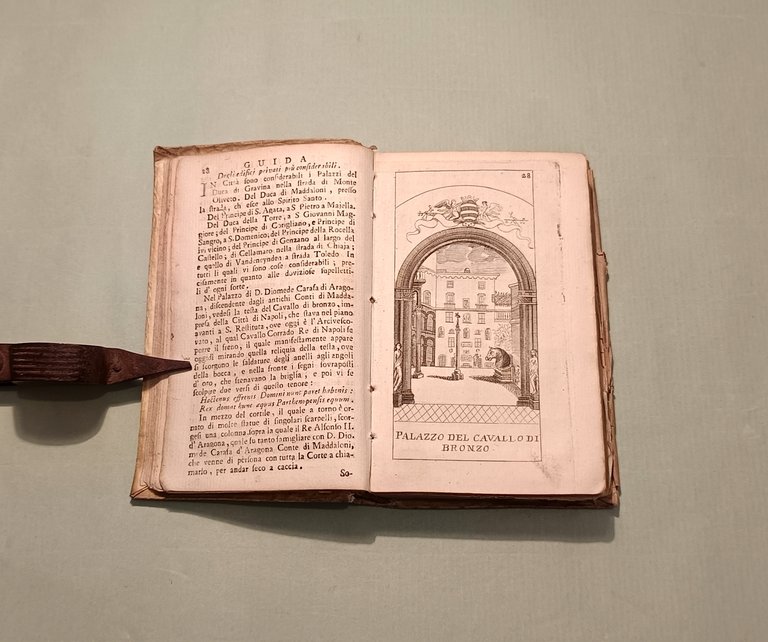 28
GUIDA
Degli edifici privati più considerabili.
IN Città sono considerabili i Palazzi del
Duca di Gravina nella strada di Monte
Oliveto. Del Duca di Maddaloni, presso
la strada, ch esce allo Spirito Santo.
Del Principe di S. Agata, a S Pietro a Majella.
Del Duca della Torre, a S Giovanni Mag-
giore; del Principe di Carigliano, e Principe di
Sangro, a S. Domenico; del Principe della Rocella
ivi vicino; del Principe di Genzano al largo del
Castello; di Cellamaro nella strada di Chiaja;
e quello di Vandeneynden a strada Toledo. In
tutti li quali vi sono cose considerabili; pre-
cisamente in quanto alle doviziose supelletti-
li d'ogni sorte.
Nel Palazzo di D. Diomede Carafa di Arago-
na, discendente dagli antichi Conti di Madda-
loni, vedesi la testa del Cavallo di bronzo, im-
presa della Città di Napoli, che stava nel piano
avanti a S. Restituta, ove oggi è l'Arcivesco-
vato, al qual Cavallo Corrado Re di Napoli fe
porre il freno, il quale manifestamente appare
oggi mirando quella reliquia della testa, ove
si scorgono le saldature degli anelli agli angoli
della bocca, e nella fronte i segni sovraposti
d'oro, che frenavano la briglia; e poi vi fè
scolpire due versi di questo tenore:
Hactenus effrenis Domini nunc paret habenis:
Rex domat hunc æquus Parthenopensis equum.
In mezzo del cortile, il quale a torno è or-
nato di molte statue di singolari scarpelli, scor-
gesi una colonna sopra la quale il Re Alfonso II.
d'Aragona, quale fu tanto famigliare con D. Dio-
mede Carafa d'Aragona Conte di Maddaloni,
che venne di persona con tutta la Corte a chia-
marlo, per andar seco a caccia.
So-
28
PALAZZO DEL CAVALLO DI
BRONZO